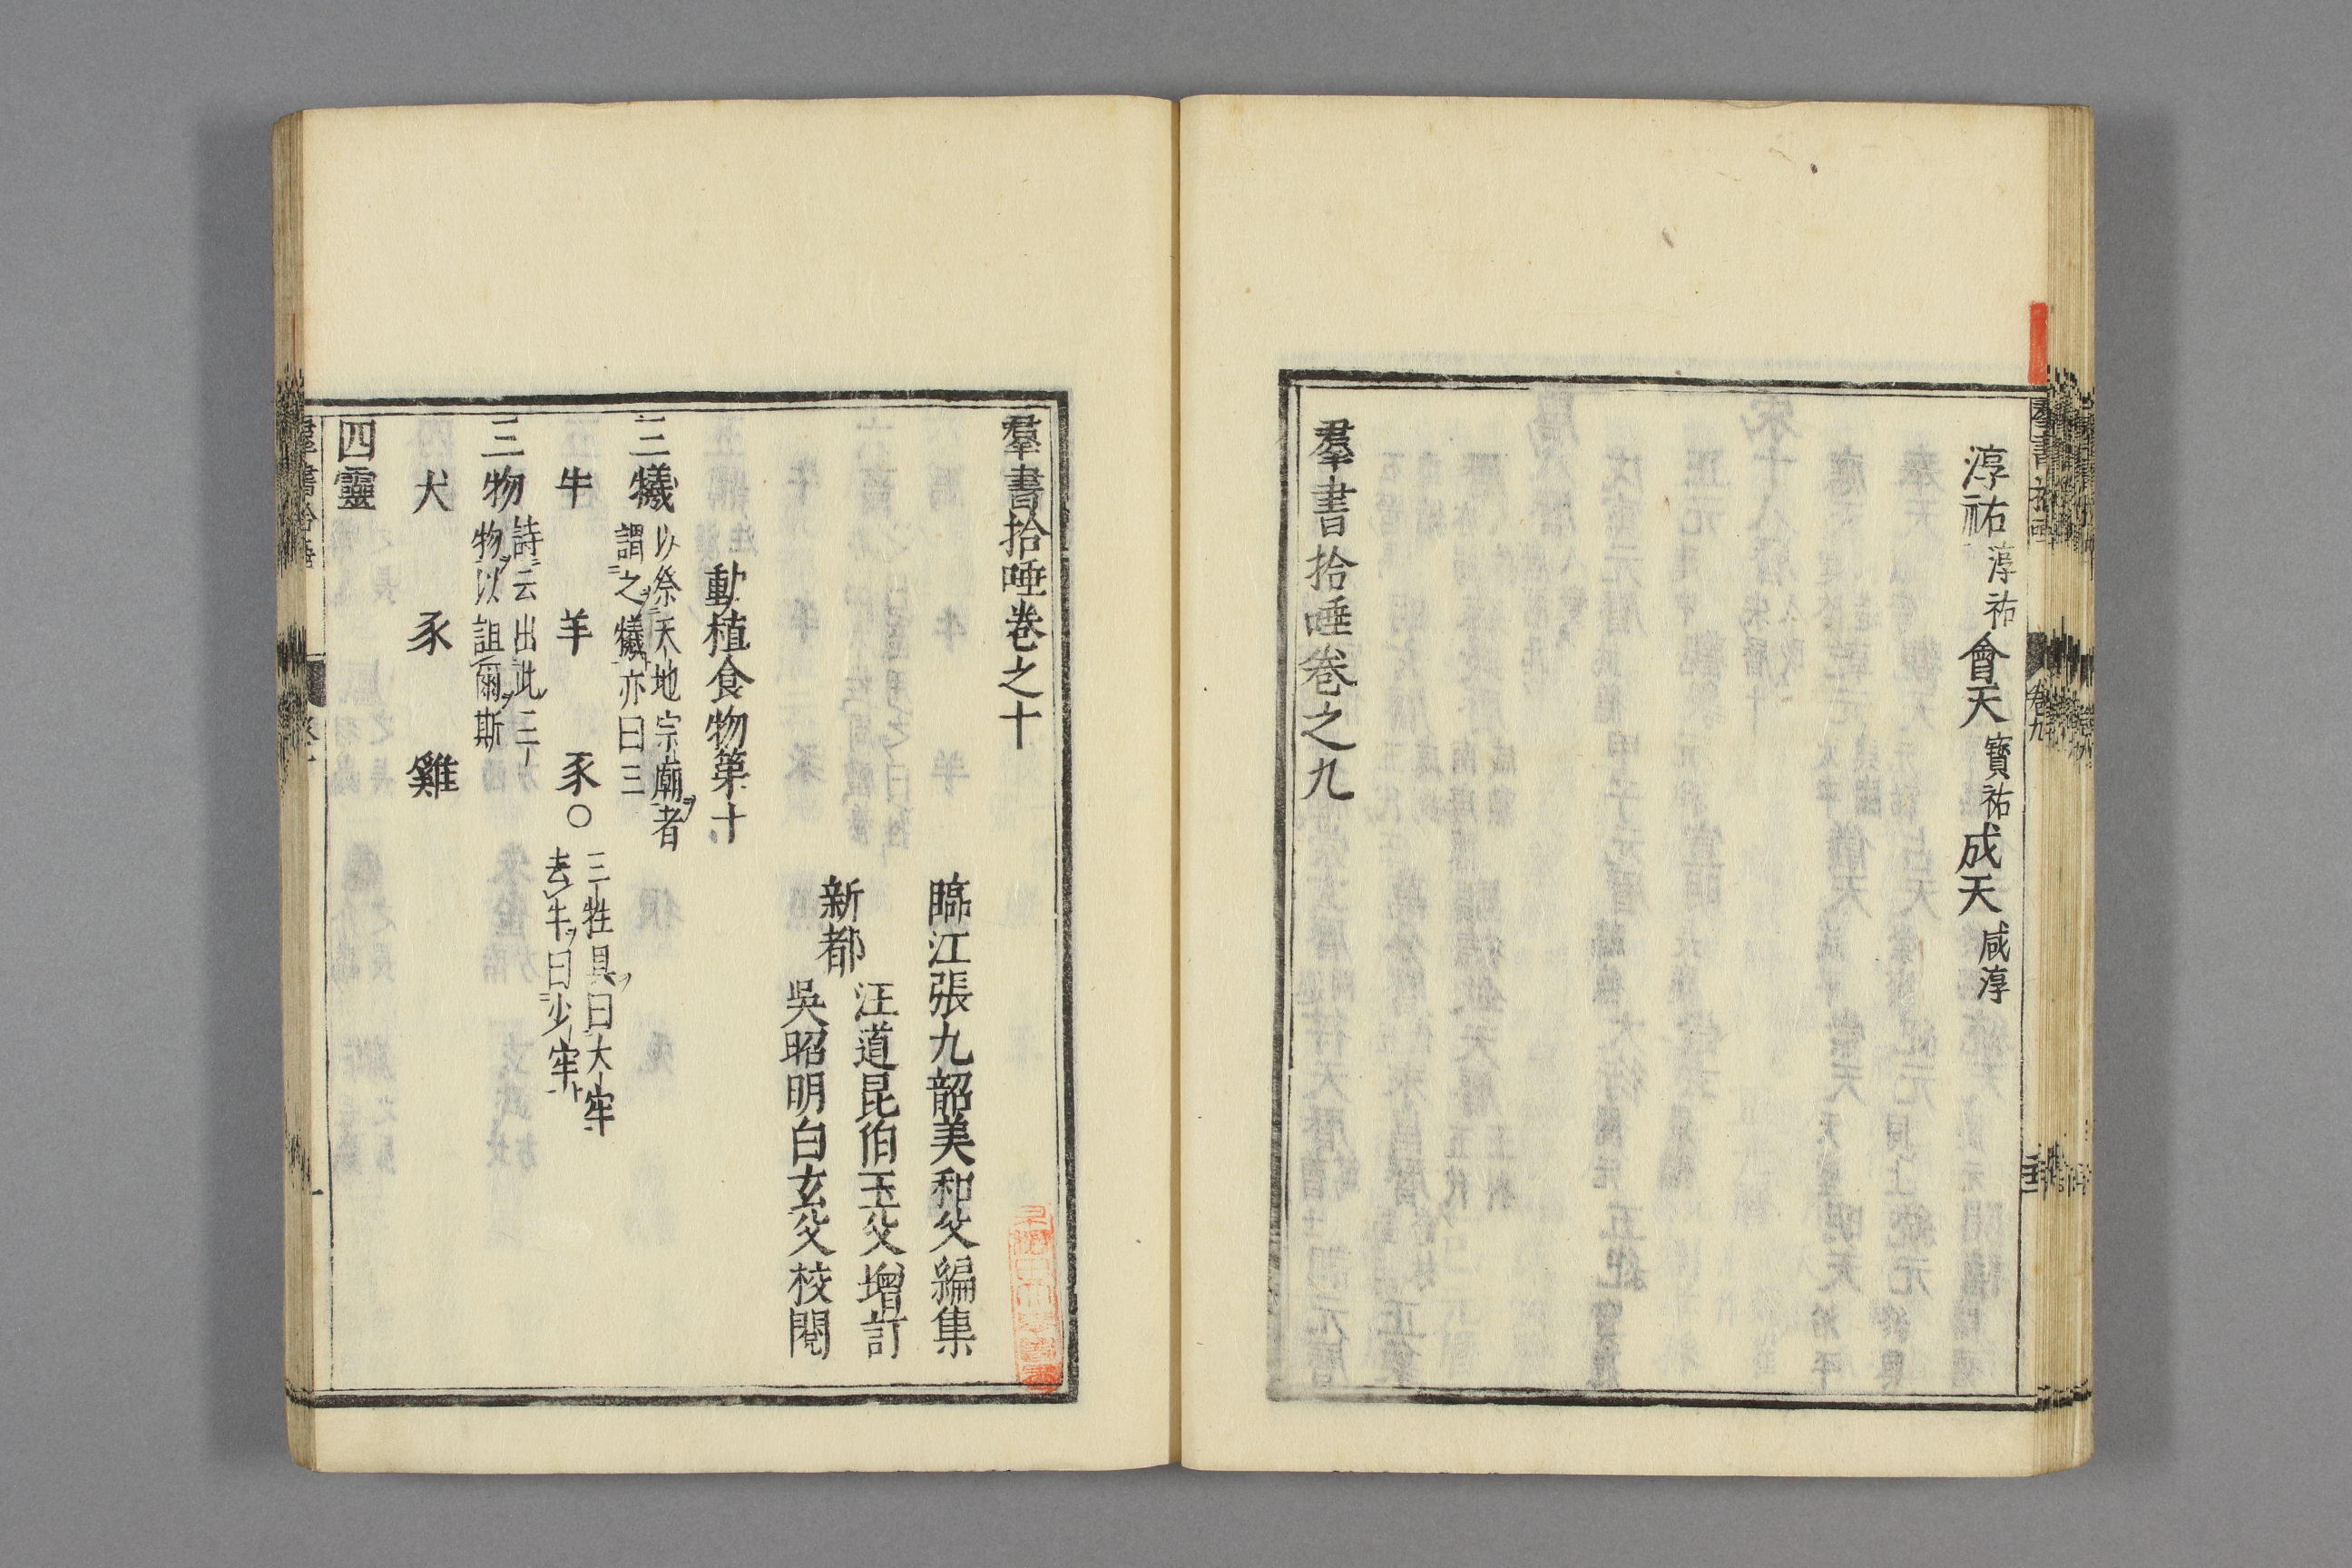 淳祐淳祐會天寶祐成天咸淳
羣書拾唾卷之九
羣書拾唾卷之十
臨江張九韶美和父編集
新都
汪道昆伯玉父增訂
吳昭明白玄父校閱
動植食物第十
三犧以祭天地宗廟者
謂之犧亦曰三
牛 羊 豕○三牲具曰大牢
去牛曰少牢
三物詩云出此三
物以詛爾斯
犬 豕 雞
四靈
卷九